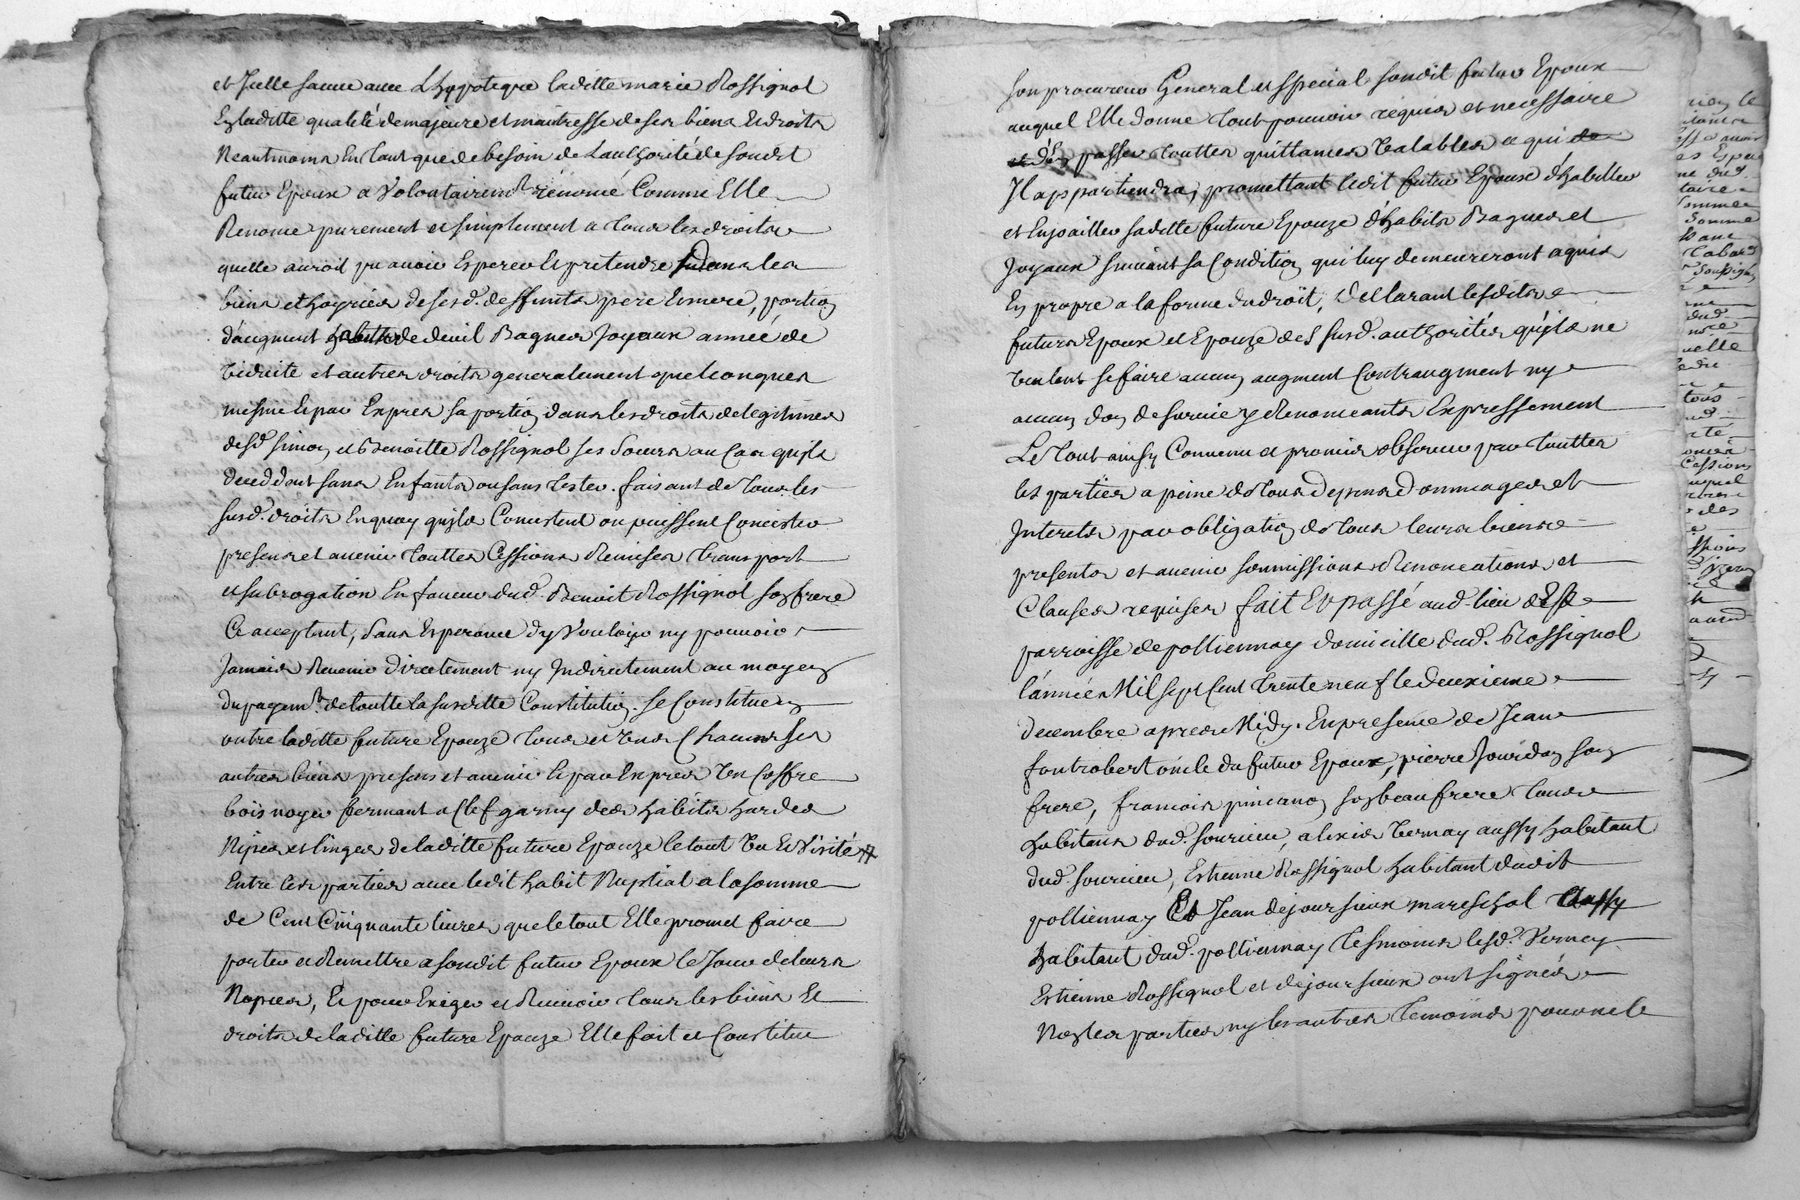 et Icelle sauve avec L'hypoteque laditte marie Rossignol
En laditte qualité de majeure et maitresse de ses biens Et droits
Neantmoins En tant que de besoin de L'authorité de son dt
futur Epoux a Volontairemt renoncé Comme Elle
Renonce purement et simplement a tous les droits
quelle auroit pu avoir Esperer Et pretendre dans les
biens et hoyries de ses d. deffunts pere Et mere, portion
d'augment de deuil Bagues Joyaux année de
Viduité et autres droits generalement quelconques
mesme Et par Exprès sa portion dans les droits de legitimes
desd. simon et Benoitte Rossignol ses Soeurs au Cas qu'ils
deceddent sans Enfants ou sans tester. faisant de tous les
susd. droits En quoy qu'ils Consistent ou puissent Concister
presens et avenir touttes Cessions Remises transport
et subrogation En faveur dud. Benoit Rossignol son frere
Ce acceptant, sans Esperance d'y Vouloir ny pouvoir
Jamais Revenir directement ny Indirectement au moyen
du payemt. de toutte la susditte Constitution. se Constituen
outre laditte future Epouze tous et Uns Chacuns ses
autres biens presens et avenir Et par Exprès Un Coffre
bois noyer fermant a Clef garny des habits hardes
Nipes et linges de laditte future Epouze le tout Vu Et Visité #
Entre les parties avec ledit habit Nuptial a la somme
de Cent Cinquante livres que le tout Elle promet faire
porter et Remettre a son dit futur Epoux le Jour de leurs
Nopces, Et pour Exiger et Recevoir tous les biens Et
droits de laditte future Epouze Elle fait et Constitue
son procureur General et special son dit futur Epoux
auquel Elle donne tout pouvoir requis et necessaire
et d'En passer touttes quittances Valables a qui
Il appartiendra, promettant ledit futur Epoux d'habiller
et Enjoailler sa ditte future Epouze d'habits Bagues et
Joyaux suivant sa Condition qui luy demeureront aquis
En propre a la forme du droit, declarant lesdits
futurs Epoux et Epouze des susd. authorités qu'ils ne
Veulent se faire aucun augment Contraugment ny
aucun don de survie y Renonceants Expressement
Le tout ainsy Convenu et promis observer par touttes
les parties a peine de tous depens dommages et
Interets par obligation de tous leurs biens
presents et avenir soumissions Renonceations et
Clauses requises fait Et passé aud. lieu de
parroisse de pollionnay domicille dud. Rossignol
l'année Mil sept Cent trente neuf le deuxieme
decembre apres Midy. En presence de Jean
fontrobert oncle du futur Epoux, pierre Jourdan son
frere, francois son beau frere tous
habitans dud. sourcieu, alexis Vernay aussy habitant
dud. sourcieu, Estienne Rossignol habitant dudit
pollionnay Et Jean dejoursieux mareschal aussy
habitant dud. pollionnay temoins lesd. Vernay
Estienne Rossignol et dejoursieux ont signés
Non les parties ny les autres temoins pour ne le